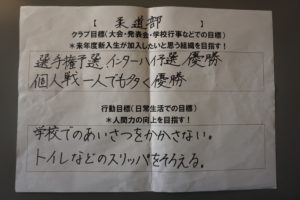 【 柔道部 】
クラブ目標(大会・発表会・学校行事などでの目標)
*来年度新入生が加入したいと思う組織を目指す!
選手権予選 インターハイ予選 優勝
個人戦一人でも多く優勝
行動目標(日常生活での目標)
*人間力の向上を目指す!
学校でのあいさつをかかさない。
トイレなどのスリッパをそろえる。